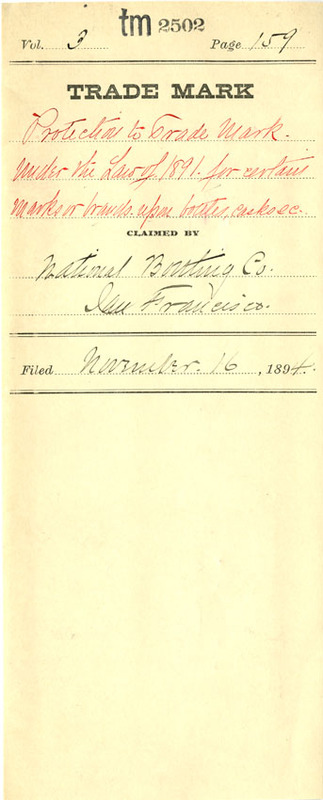 tm 2502
Vol. 3 Page 159
TRADE MARK
Protection to Trade Mark.
Under the Law of 1891. for certain
marks or brands upon bottles, casks &c.
CLAIMED BY
National Bottling Co.
San Francisco.
Filed November. 16, 1894.